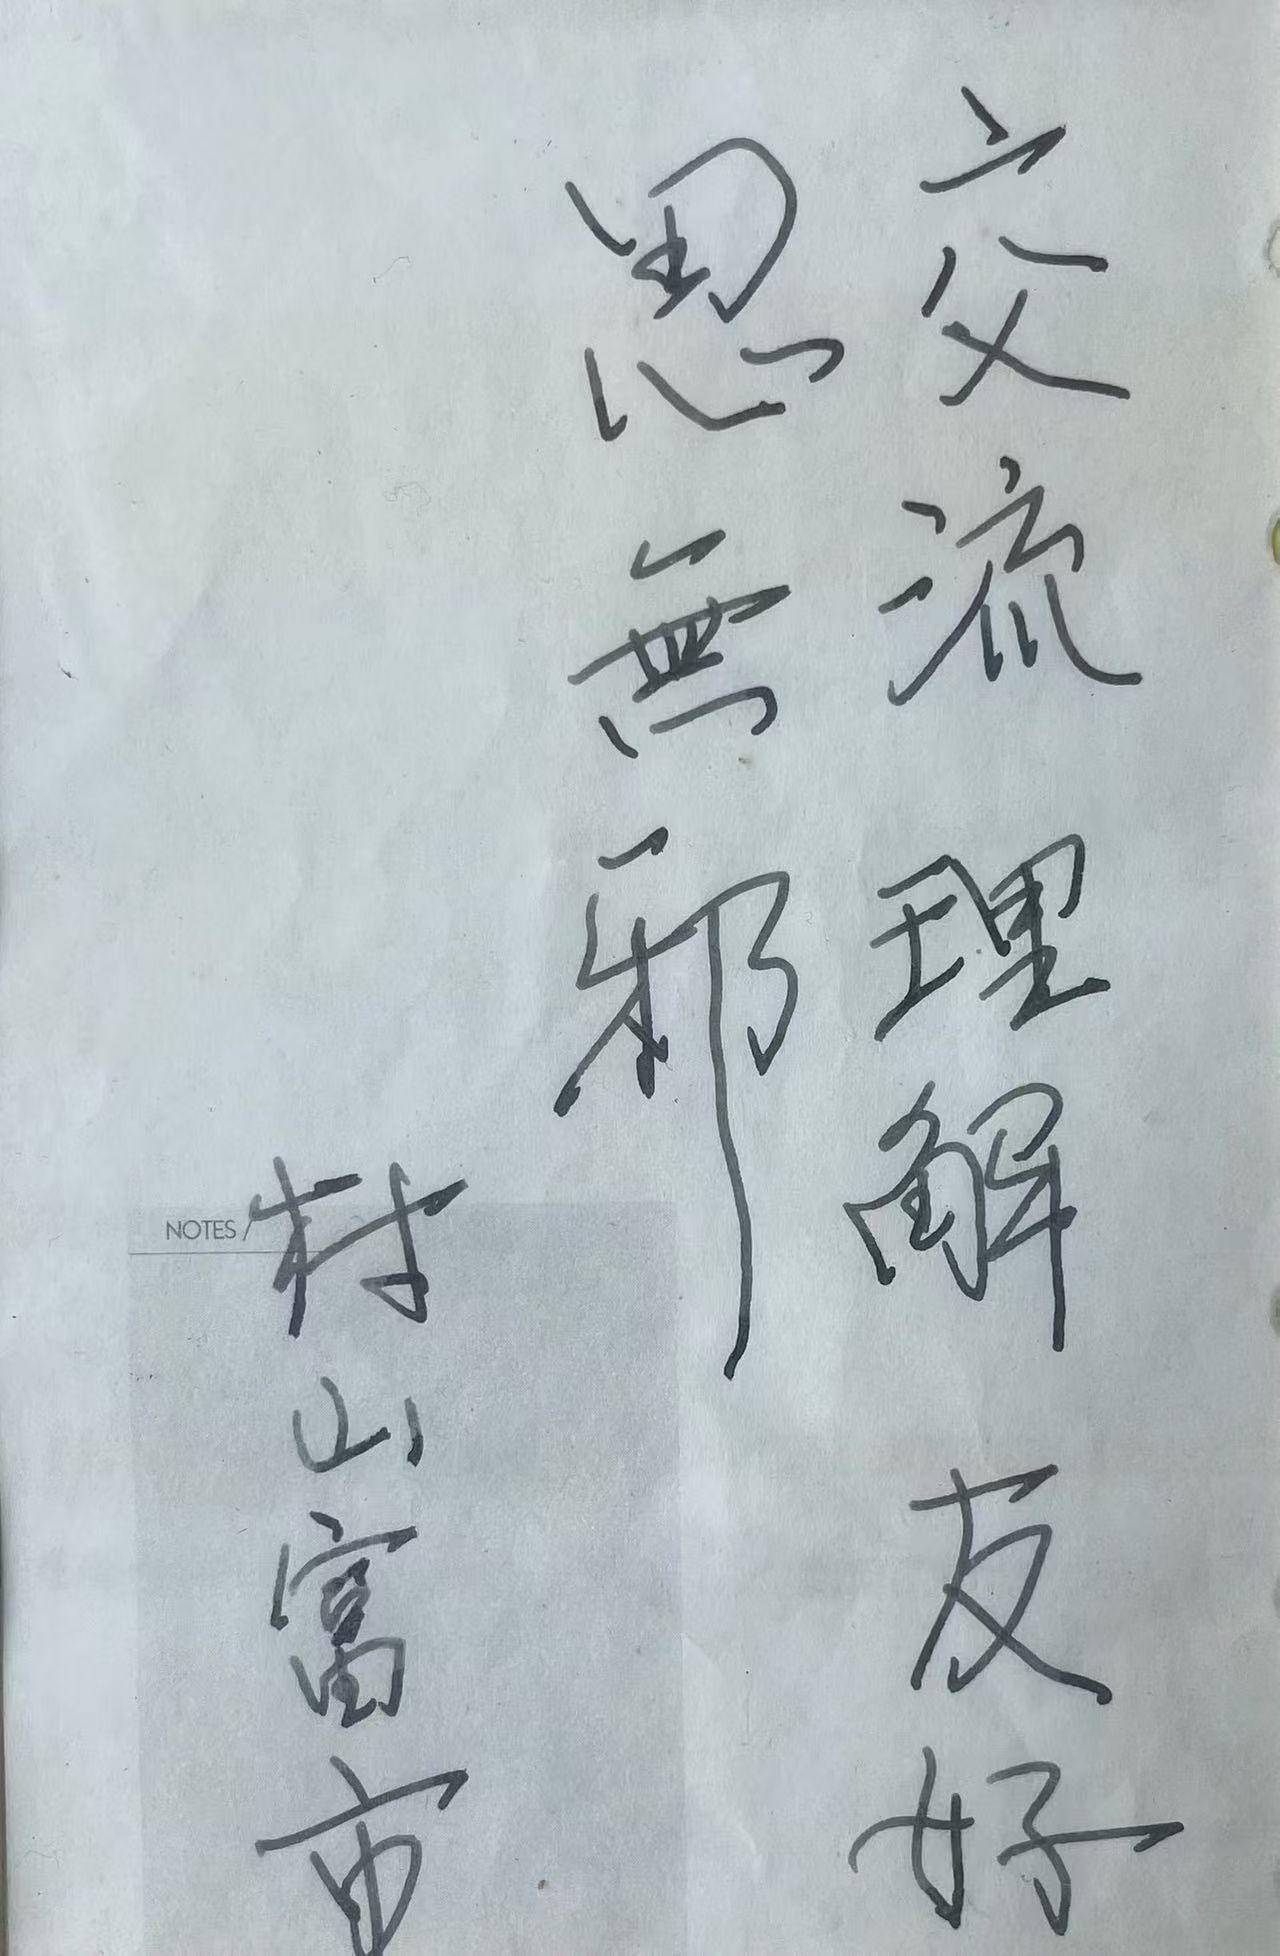 交流 理解 友好
思無邪
村山富市
NOTES /